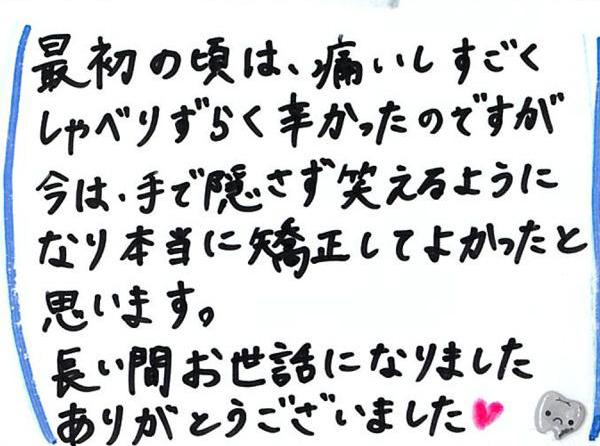 最初の頃は、痛いしすごく
しゃべりずらく辛かったのですが
今は、手で隠さず笑えるように
なり本当に矯正してよかったと
思います。
長い間お世話になりました
ありがとうございました